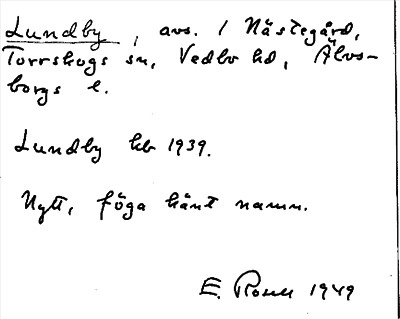 Lundby, avs. 1 Nästegård,
Torrskogs sn, Vedbo hd, Älvs-
borgs l.
Lundby kb 1939.
Nytt, föga känt namn.
E. Rosell 1949